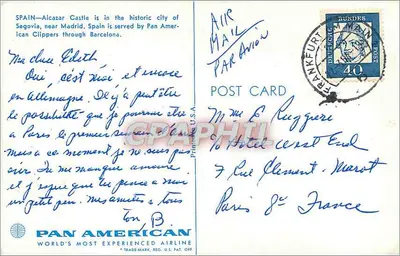 SPAIN—Alcazar Castle is in the historic city of
Segovia, near Madrid. Spain is served by Pan Amer-
ican Clippers through Barcelona.
Ma chere Edith,
Oui, c'est moi et encore
en Allemagne. Il y a peut être
la possibilité que je pourrai être
a Paris le premier
mais a ce moment je ne suis pas
sur. Tu me manque
et j'espere que tu pense a moi
un petit peu. Mes amities a tous
ton, B.
PAN AMERICAN
WORLD'S MOST EXPERIENCED AIRLINE
* TRADE-MARK, REG. U.S. PAT. OFF.
Printed in U.S.A.
CPAPHIL
AIR
MAIL
PAR AVION
POST CARD
FRANKFURT MAIN
DEUTSCHE BUNDESPOST
40
Mme E Ruggieri
% Hotel West End
7 Rue Clement-Marot
Paris 8e France